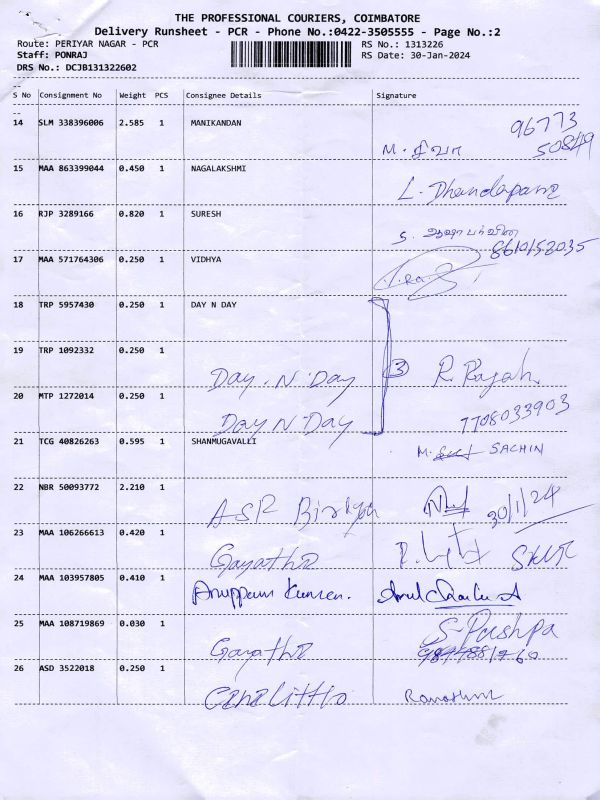 THE PROFESSIONAL COURIERS, COIMBATORE
Delivery Runsheet - PCR - Phone No.:0422-3505555 - Page No.:2
Route: PERIYAR NAGAR - PCR
RS No.: 1313226
Staff: PONRAJ
RS Date: 30-Jan-2024
DRS No.: DCJB131322602
S No Consignment No Weight PCS Consignee Details Signature
14 SLM 338396006 2.585 1 MANIKANDAN
96773
50849
M. சிவா
15 MAA 863399044 0.450 1 NAGALAKSHMI
L. Dhandapani
16 RJP 3289166 0.820 1 SURESH
S.
8610152035
17 MAA 571764306 0.250 1 VIDHYA
18 TRP 5957430 0.250 1 DAY N DAY
19 TRP 1092332 0.250 1
Day . N . Day 3 R. Rajah.
20 MTP 1272014 0.250 1
Day N Day 7708033903
21 TCG 40826263 0.595 1 SHANMUGAVALLI
M. SACHIN
22 NBR 50093772 2.210 1
ASR 30/1/24
23 MAA 106266613 0.420 1
Gayathri
24 MAA 103957805 0.410 1
25 MAA 108719869 0.030 1
S-Pushpa
Gayathri
26 ASD 3522018 0.250 1